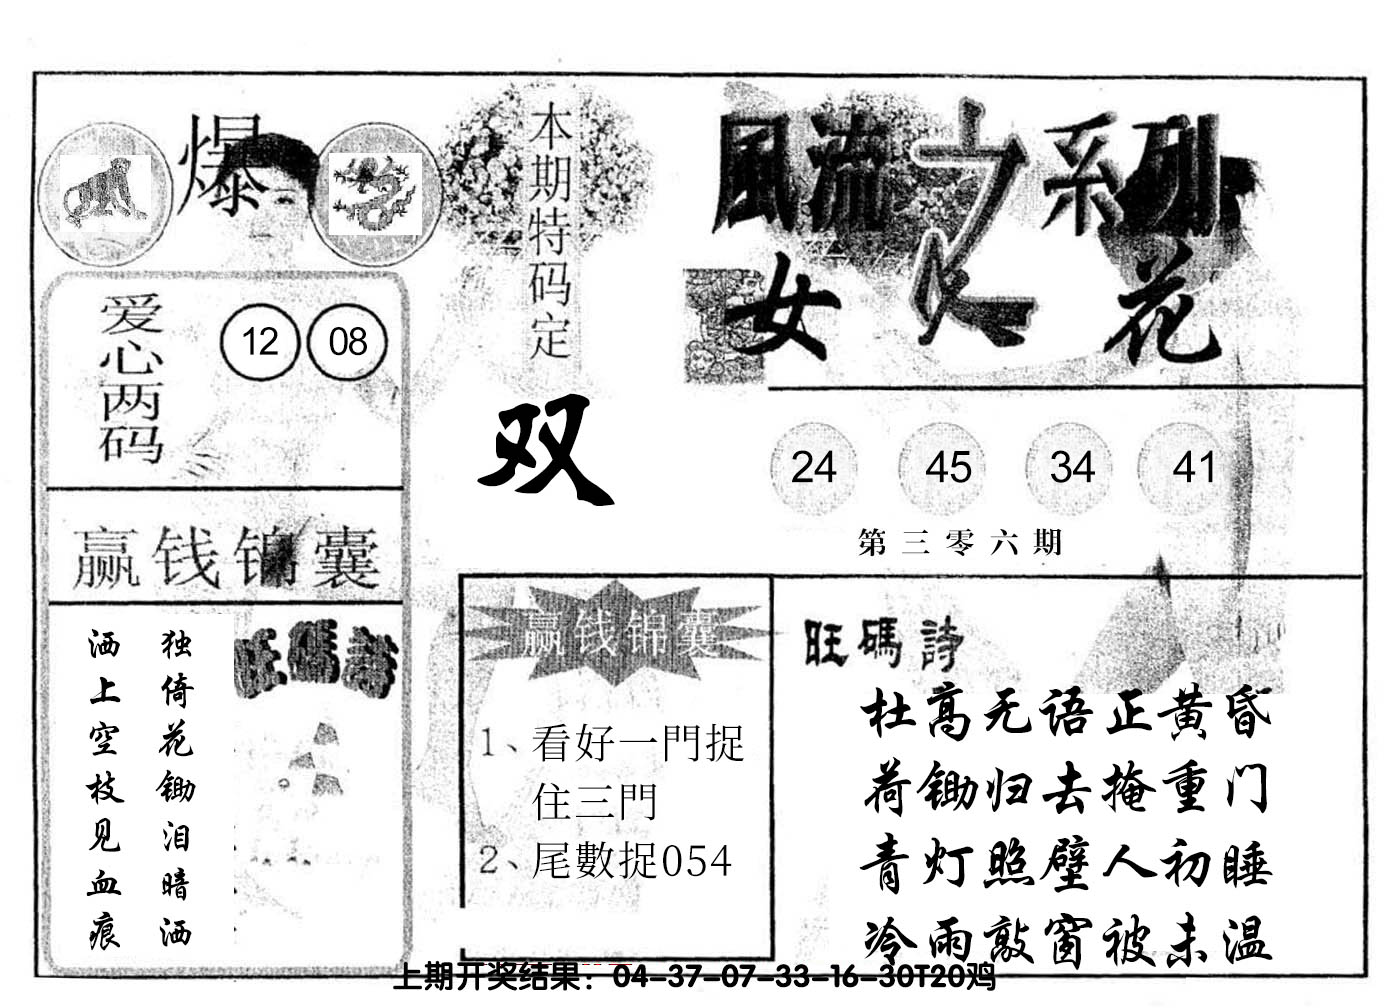 爆
本期特码定
双
爱心两码
12 08
赢钱锦囊
独倚花锄泪暗洒
洒上空枝见血痕
旺碼詩
風流之系列
女人花
24 45 34 41
第三零六期
赢钱锦囊
1、看好一門捉
住三門
2、尾數捉054
旺碼詩
杜高无语正黄昏
荷锄归去掩重门
青灯照壁人初睡
冷雨敲窗被未温
上期开奖结果：04-37-07-33-16-30T20鸡